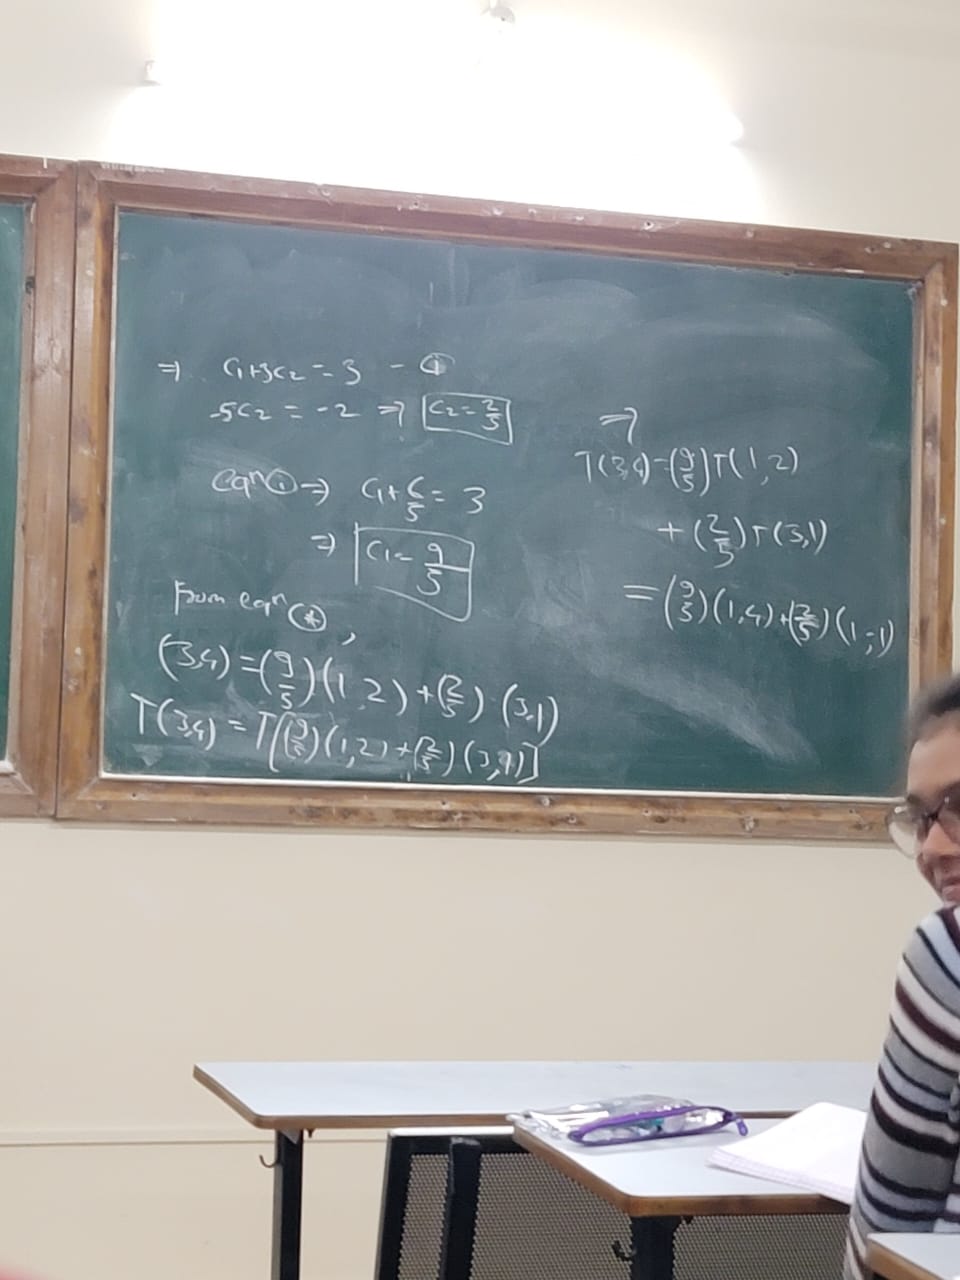 ⇒ C₁+3C₂ = 3 - ①
-5C₂ = -2 ⇒ C₂ = 2/5
Eqⁿ① ⇒ C₁ + 6/5 = 3
⇒ C₁ = 9/5
From eqⁿ (*),
(3,4) = (9/5)(1,2) + (2/5)·(3,1)
T(3,4) = T[(9/5)(1,2) + (2/5)(3,1)]
⇒
T(3,4) = (9/5)T(1,2)
+ (2/5)T(3,1)
= (9/5)(1,4) + (2/5)(1,-1)